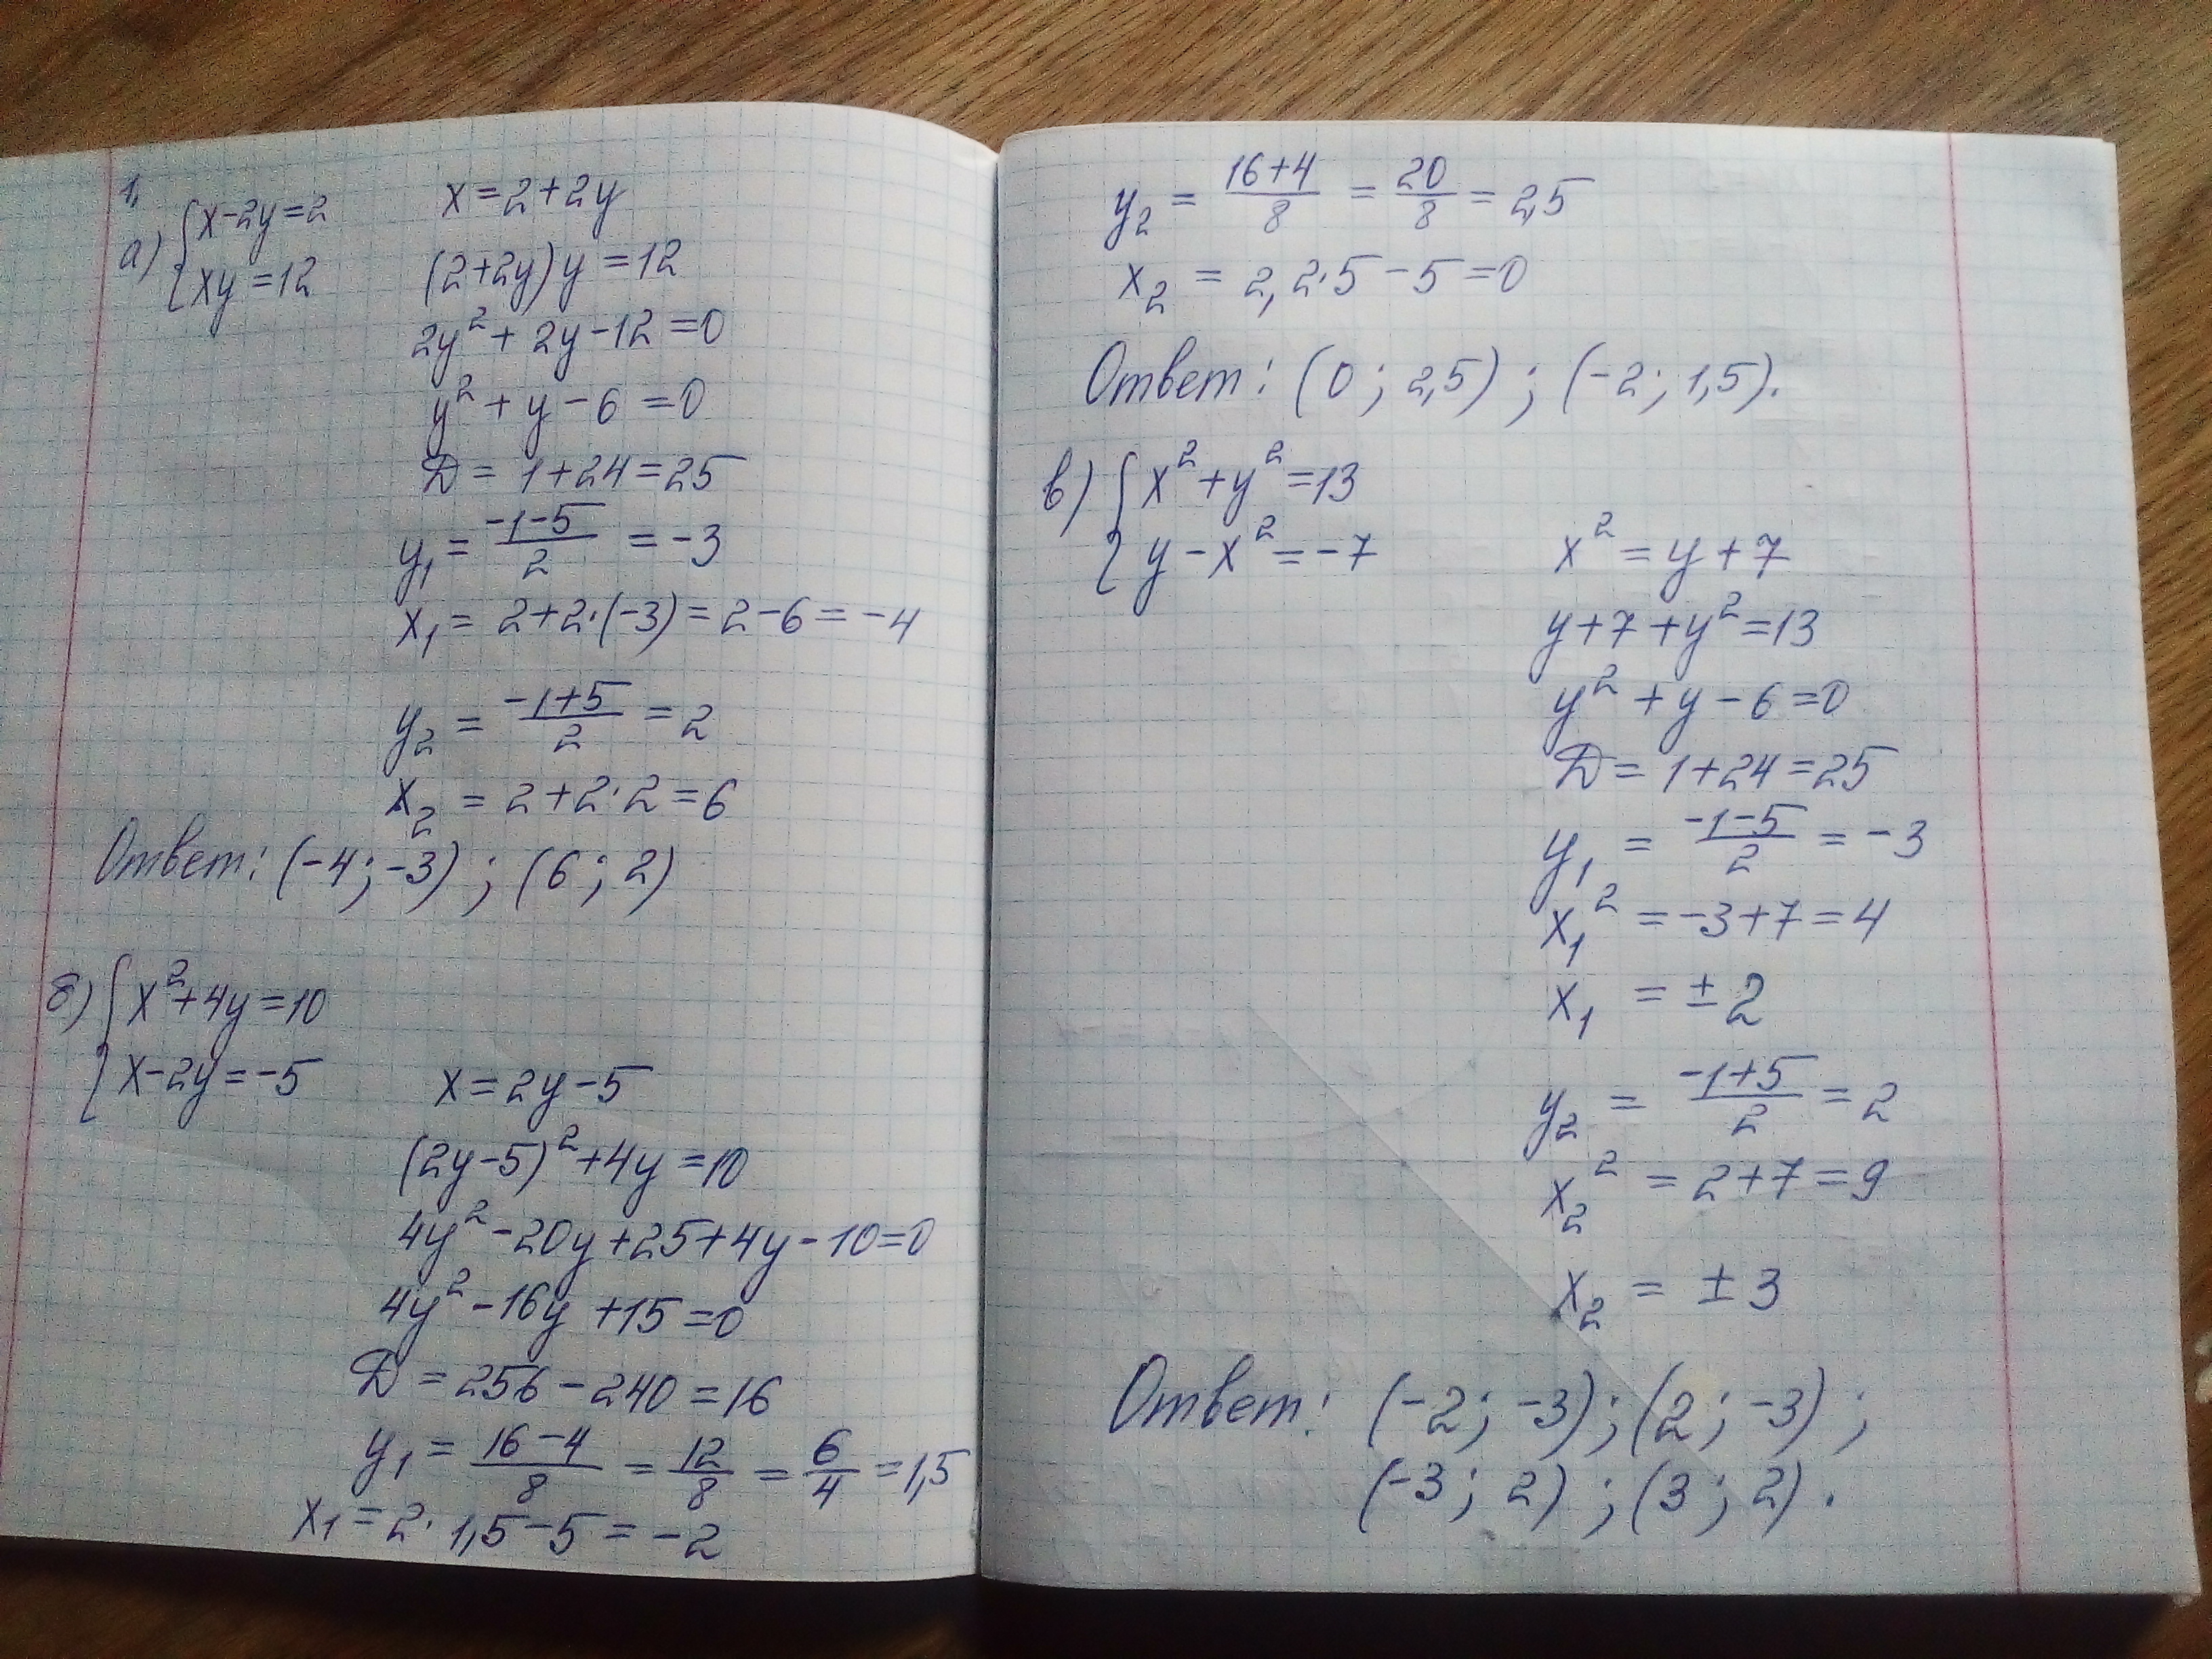 1.
а) { x-2y=2
xy=12
x=2+2y
(2+2y)y=12
2y²+2y-12=0
y²+y-6=0
D=1+24=25
y₁=(-1-5)/2=-3
x₁=2+2·(-3)=2-6=-4
y₂=(-1+5)/2=2
x₂=2+2·2=6
Ответ: (-4;-3) ; (6;2)
б) { x²+4y=10
x-2y=-5
x=2y-5
(2y-5)²+4y=10
4y²-20y+25+4y-10=0
4y²-16y+15=0
D=256-240=16
y₁=(16-4)/8=12/8=6/4=1,5
x₁=2·1,5-5=-2
y₂=(16+4)/8=20/8=2,5
x₂=2,2·5-5=0
Ответ: (0;2,5) ; (-2;1,5).
в) { x²+y²=13
y-x²=-7
x²=y+7
y+7+y²=13
y²+y-6=0
D=1+24=25
y₁=(-1-5)/2=-3
x₁²=-3+7=4
x₁=±2
y₂=(-1+5)/2=2
x₂²=2+7=9
x₂=±3
Ответ: (-2;-3);(2;-3);
(-3;2);(3;2).